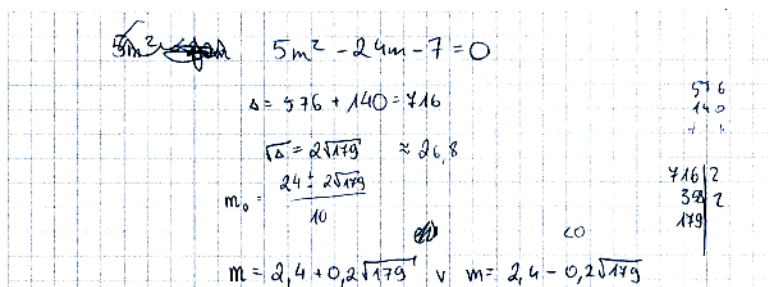 5m² - 24m - 7 = 0
Δ = 576 + 140 = 716
√Δ = 2√179 ≈ 26,8
m₀ = (24 ± 2√179)/10
<0
m = 2,4 + 0,2√179 v m = 2,4 - 0,2√179
576
140
716|2
358|2
179|